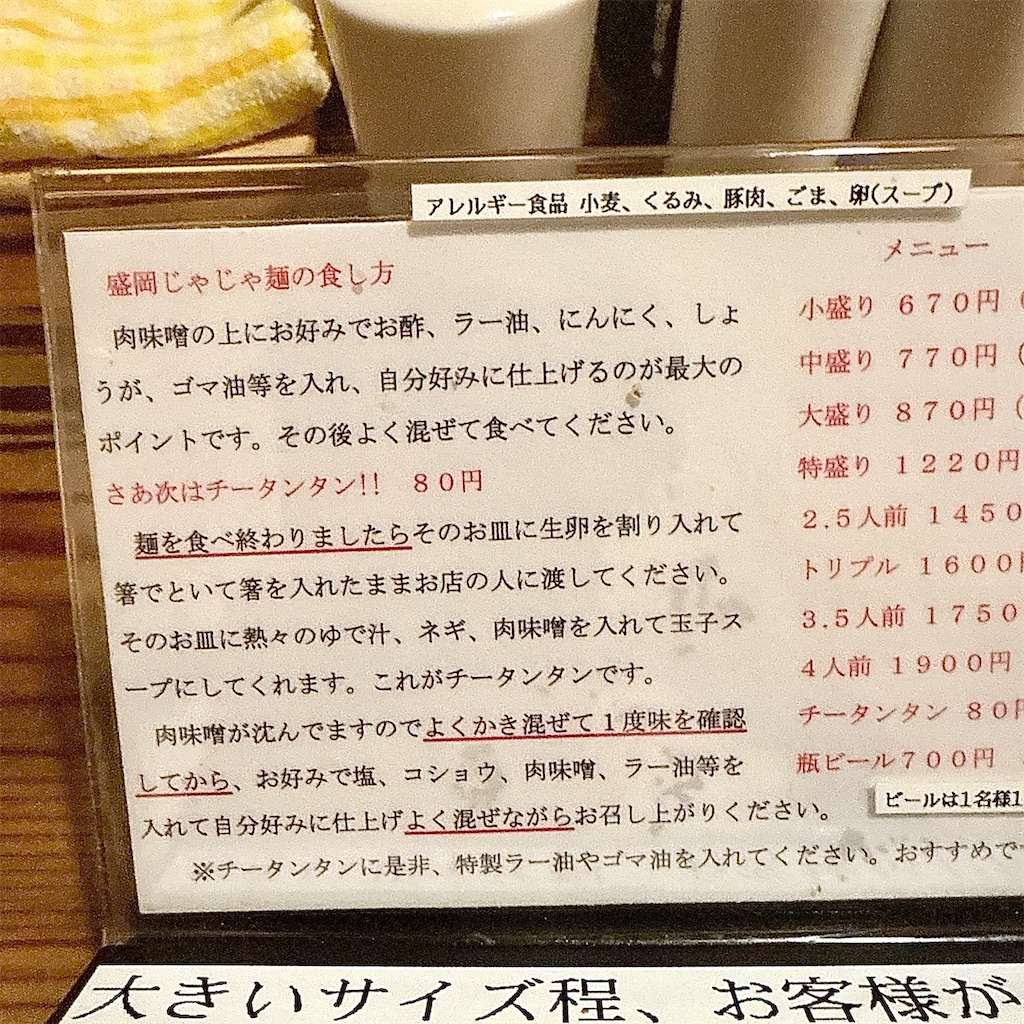 アレルギー食品 小麦、くるみ、豚肉、ごま、卵(スープ)
盛岡じゃじゃ麺の食し方
肉味噌の上にお好みでお酢、ラー油、にんにく、しょ
うが、ゴマ油等を入れ、自分好みに仕上げるのが最大の
ポイントです。その後よく混ぜて食べてください。
さあ次はチータンタン!! 80円
麺を食べ終わりましたらそのお皿に生卵を割り入れて
箸でといて箸を入れたままお店の人に渡してください。
そのお皿に熱々のゆで汁、ネギ、肉味噌を入れて玉子ス
ープにしてくれます。これがチータンタンです。
肉味噌が沈んでますのでよくかき混ぜて1度味を確認
してから、お好みで塩、コショウ、肉味噌、ラー油等を
入れて自分好みに仕上げよく混ぜながらお召し上がりください。
※チータンタンに是非、特製ラー油やゴマ油を入れてください。おすすめで
メニュー
小盛り 670円
中盛り 770円 (
大盛り 870円 (
特盛り 1220円
2.5人前 1450
トリプル 1600円
3.5人前 1750
4人前 1900円
チータンタン 80円
瓶ビール700円
ビールは1名様1
大きいサイズ程、お客様が